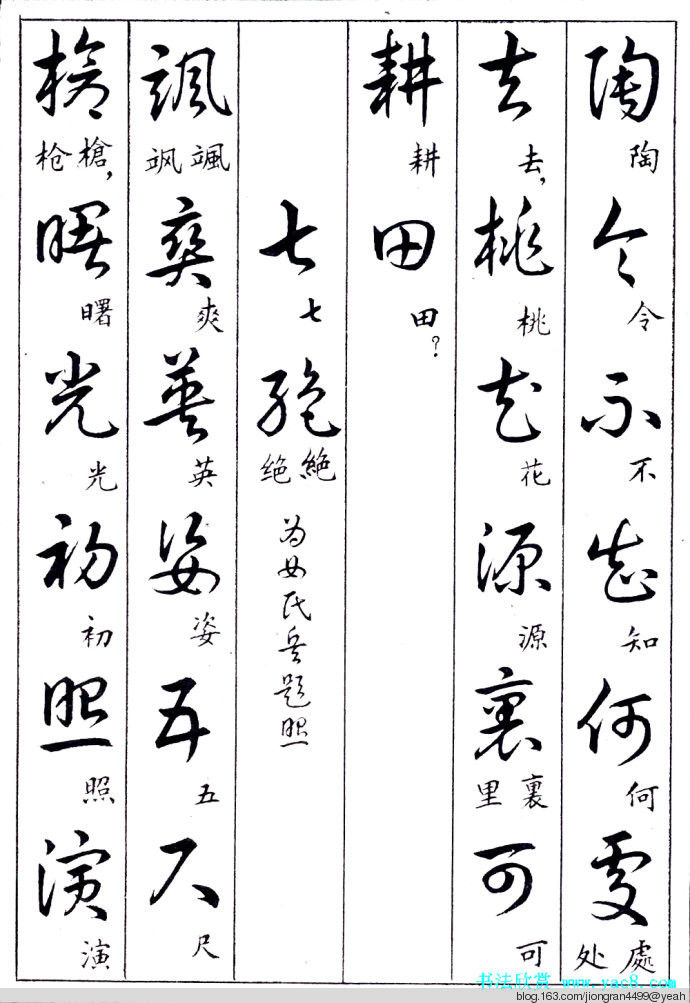 陶令不知何處
陶 令 不 知 何 處 处
去桃花源裏可
去， 桃 花 源 裏 里 可
耕田
耕 田？
七絕
七 絕 绝
为女民兵题照
颯爽英姿五尺
颯 飒 爽 英 姿 五 尺
槍曙光初照演
槍， 枪 曙 光 初 照 演
书法欣赏 www.yac8.com
blog.163.com/jiongran4499@yeah